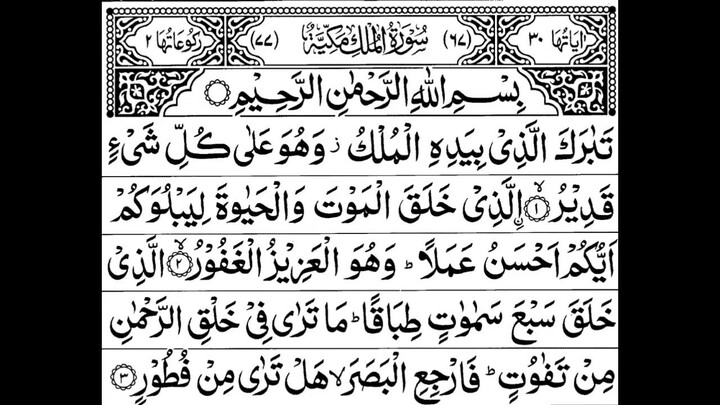 اٰیاتها ٣٠ (٦٧) سُوْرَةُ الْمُلْكِ مَكِّیَّةٌ (٧٧) رکوعاتها ٢
بِسْمِ اللّٰهِ الرَّحْمٰنِ الرَّحِیْمِ ۝
تَبٰرَكَ الَّذِیْ بِیَدِهِ الْمُلْكُ ز وَهُوَ عَلٰی كُلِّ شَیْءٍ
قَدِیْرُ ۙ﴿١﴾ نِ الَّذِیْ خَلَقَ الْمَوْتَ وَالْحَیٰوةَ لِیَبْلُوَكُمْ
اَیُّكُمْ اَحْسَنُ عَمَلًا ؕ وَهُوَ الْعَزِیْزُ الْغَفُوْرُ ۙ﴿٢﴾ الَّذِیْ
خَلَقَ سَبْعَ سَمٰوٰتٍ طِبَاقًا ؕ مَا تَرٰی فِیْ خَلْقِ الرَّحْمٰنِ
مِنْ تَفٰوُتٍ ؕ فَارْجِعِ الْبَصَرَ ۙ هَلْ تَرٰی مِنْ فُطُوْرٍ ﴿٣﴾